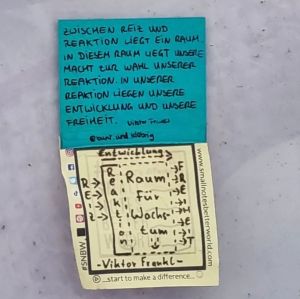 ZWISCHEN REIZ UND
REAKTION LIEGT EIN RAUM.
IN DIESEM RAUM LIEGT UNSERE
MACHT ZUR WAHL UNSERER
REAKTION. IN UNSERER
REAKTION LIEGEN UNSERE
ENTWICKLUNG UND UNSERE
FREIHEIT.
Entwicklung
REIZ
Reaktion
Raum
für
Wachs-
tum
FREIHEIT
-Viktor Frankl-
#SNBW
www.smallnotesbetterworld.com
...start to make a difference...